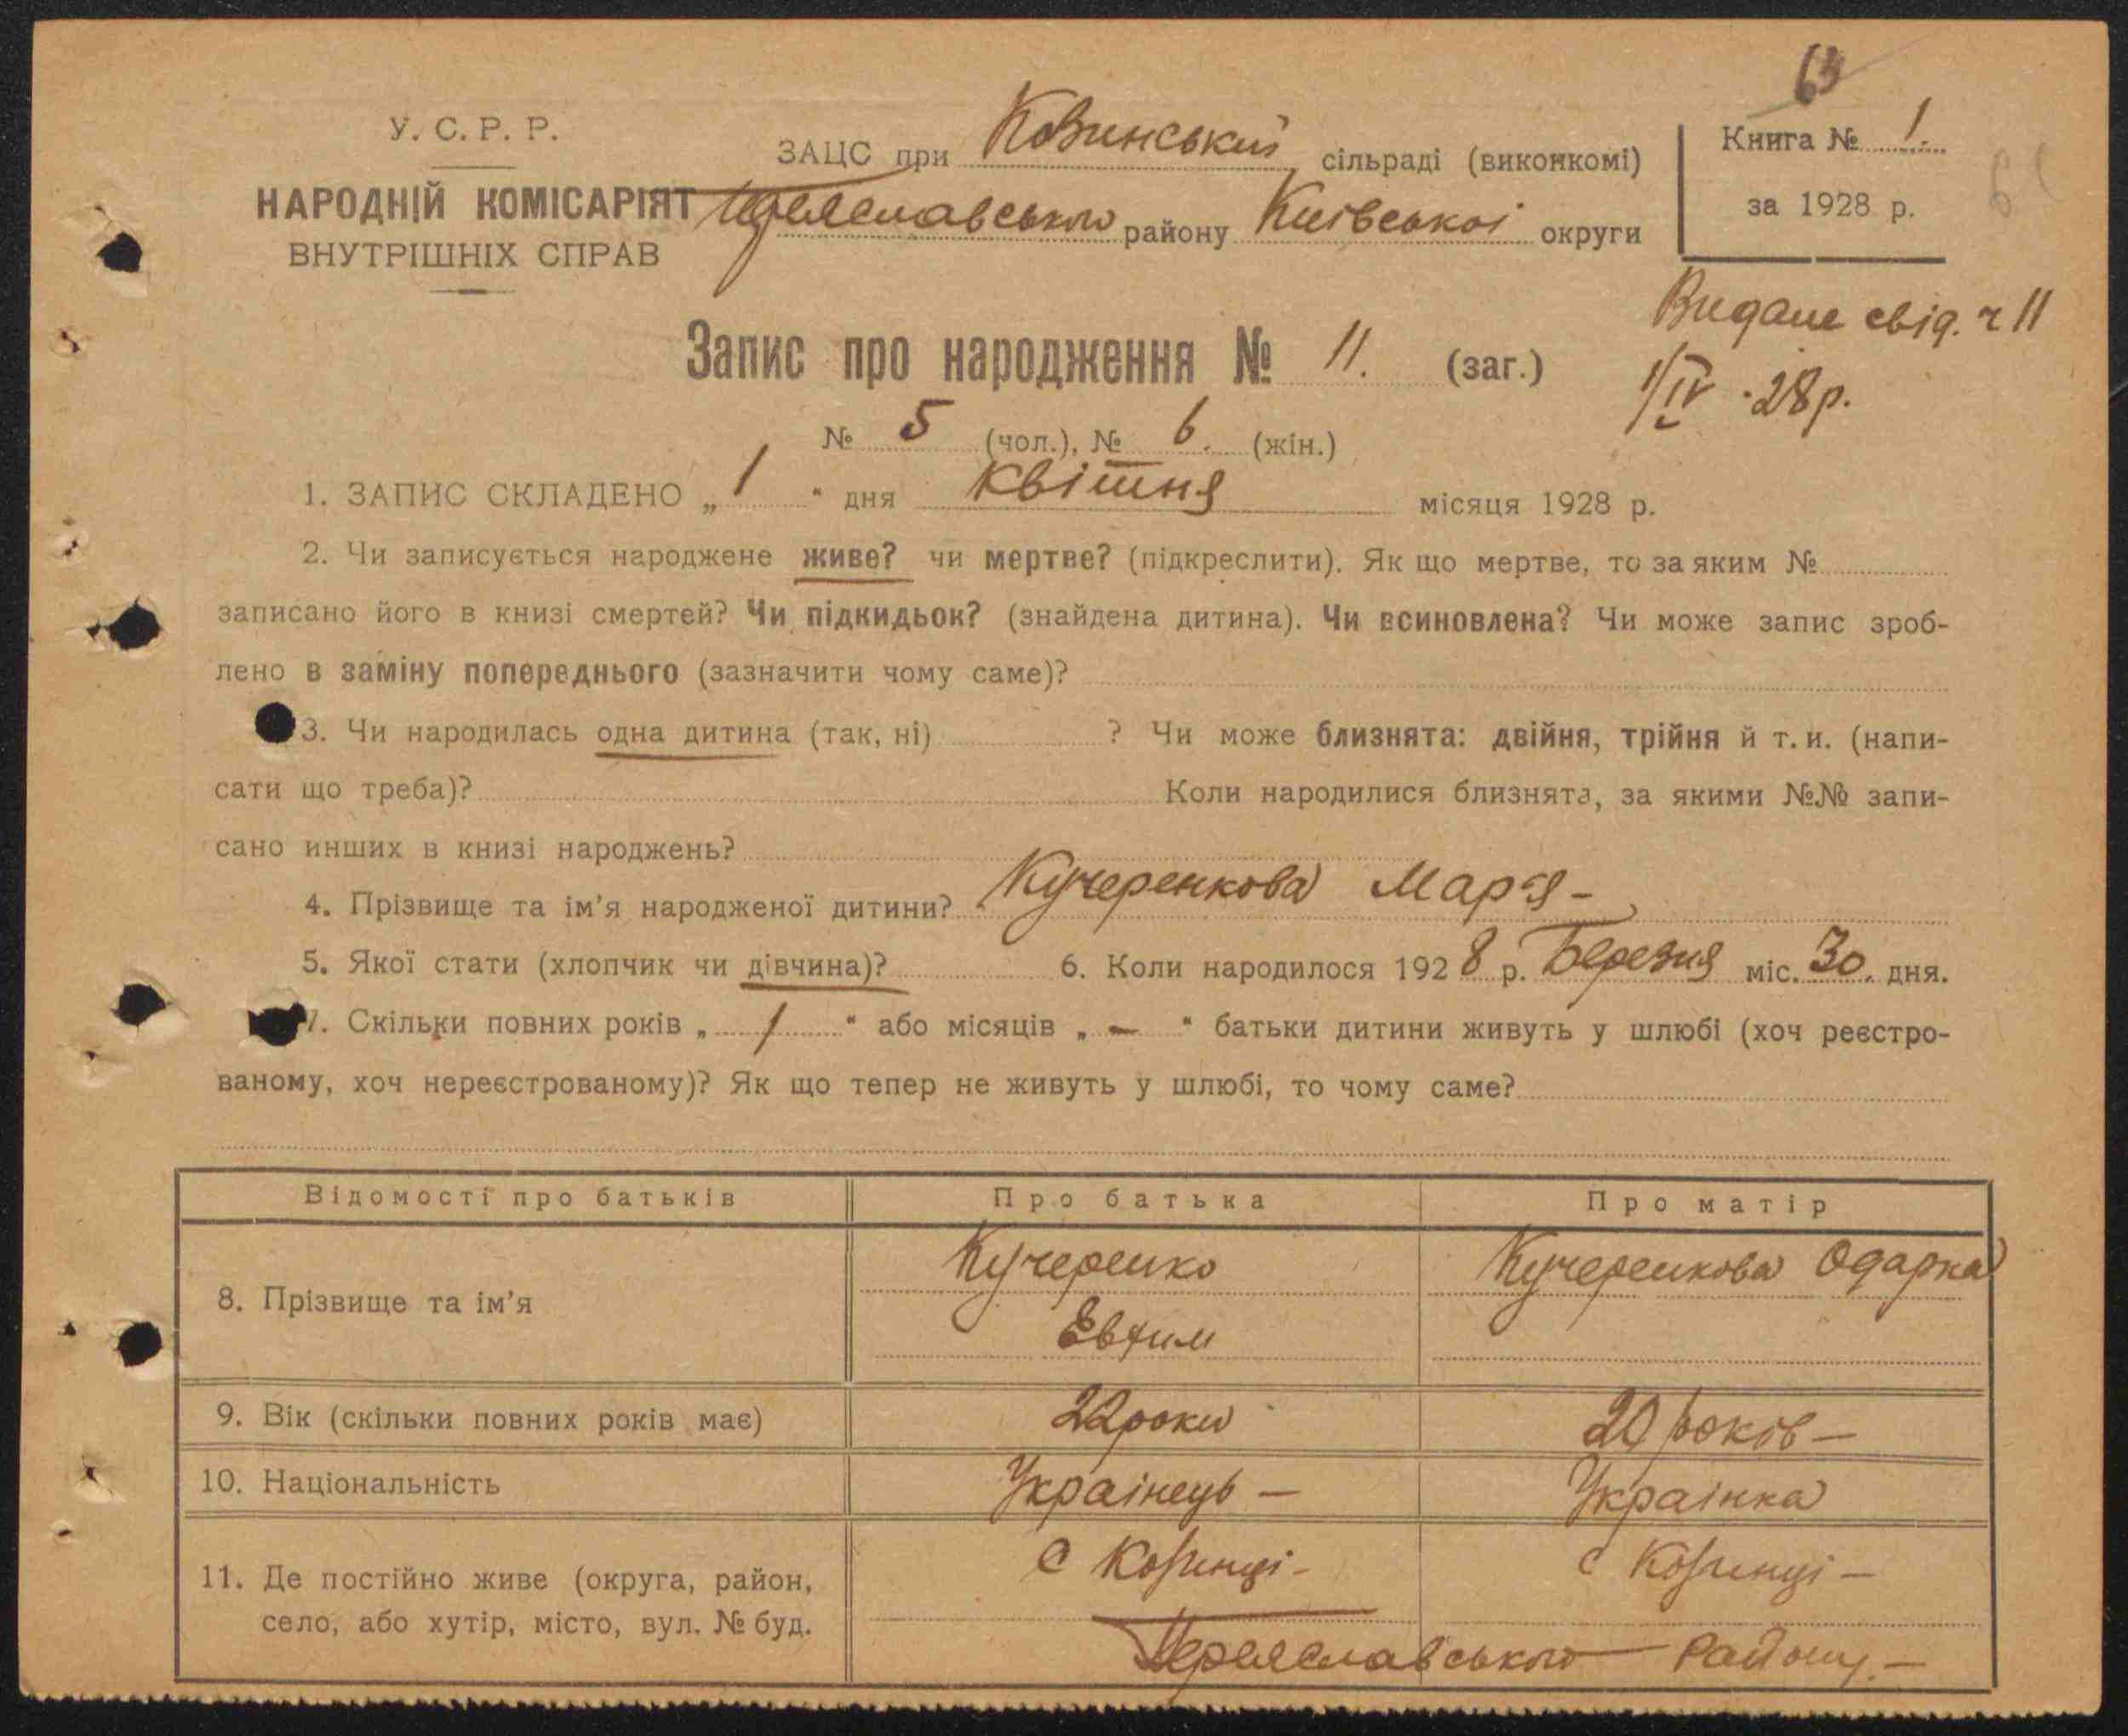 63
У. С. Р. Р.
ЗАЦС при Ковинський сільраді (виконкомі)
Книга № 1.
НАРОДНІЙ КОМІСАРІЯТ
Переяславського району Київської округи
за 1928 р.
ВНУТРІШНІХ СПРАВ
Видане свід. ч 11
Запис про народження № 11. (заг.)
1/IV -28р.
№ 5 (чол.), № 6. (жін.)
1. ЗАПИС СКЛАДЕНО „ 1 “ дня Квітня місяця 1928 р.
2. Чи записується народжене живе? чи мертве? (підкреслити). Як що мертве, то за яким №
записано його в книзі смертей? Чи підкидьок? (знайдена дитина). Чи всиновлена? Чи може запис зроб-
лено в заміну попереднього (зазначити чому саме)?
3. Чи народилась одна дитина (так, ні) ? Чи може близнята: двійня, трійня й т. и. (напи-
сати що треба)? Коли народилися близнята, за якими №№ запи-
сано инших в книзі народжень?
4. Прізвище та ім’я народженої дитини? Кучеренкова Мар’я -
5. Якої стати (хлопчик чи дівчина)? 6. Коли народилося 1928 р. Березня міс. 30. дня.
7. Скільки повних років „ 1 “ або місяців „ — “ батьки дитини живуть у шлюбі (хоч реєстро-
ваному, хоч нереєстрованому)? Як що тепер не живуть у шлюбі, то чому саме?
Відомості про батьків Про батька Про матір
8. Прізвище та ім’я Кучеренко Кучеренкова Одарка
Евтим
9. Вік (скільки повних років має) 22 роки 20 років —
10. Національність Українець — Українка
11. Де постійно живе (округа, район, с Ковинці - с Ковинці —
село, або хутір, місто, вул. № буд. Переяславського району. —